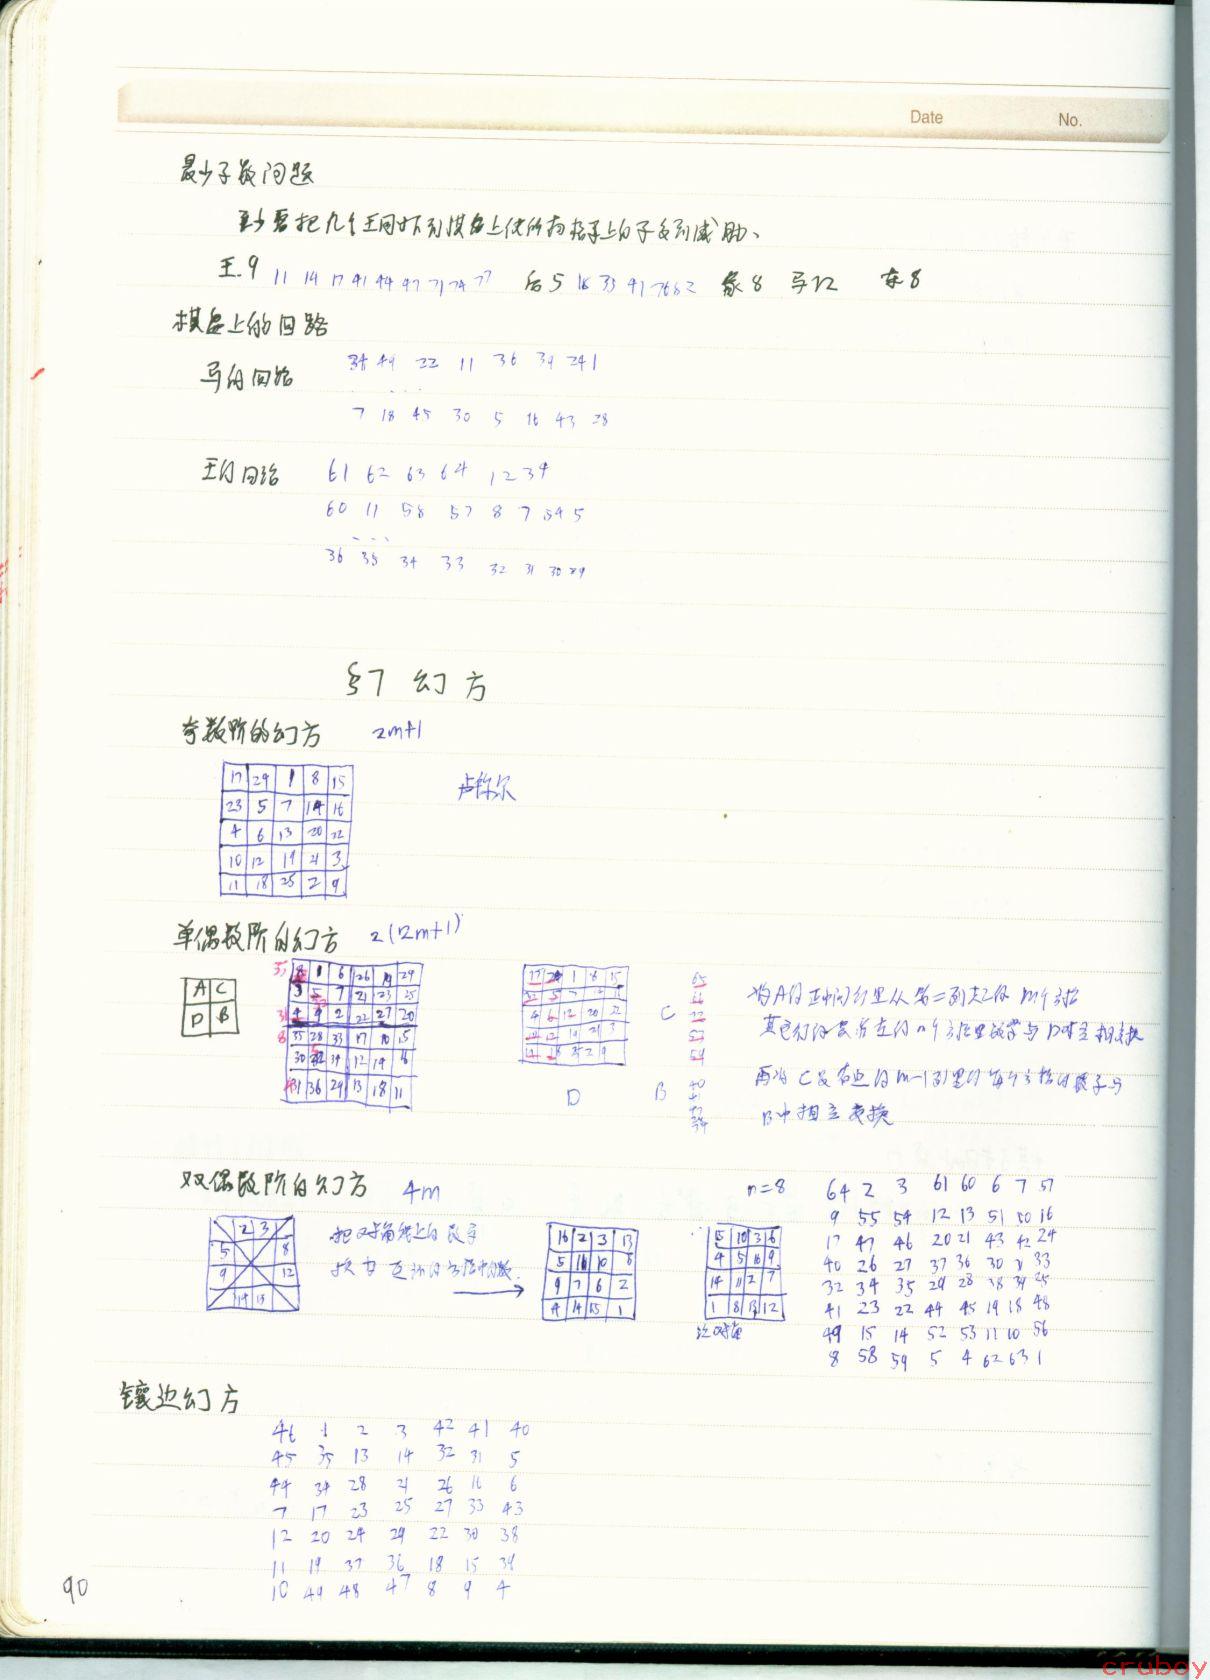 Date No.
最少子数问题
至少要把几个王同时下到棋盘上使所有格子上的子受到威胁、
王.9 11 14 17 41 44 47 71 74 77 后5 16 33 41 76 82 象8 马12 车8
棋盘上的回路
马的回路 34 49 22 11 36 39 24 1
. . . .
7 18 45 30 5 16 43 28
王的回路 61 62 63 64 1 2 3 4
60 11 58 57 8 7 54 5
. . .
36 35 34 33 32 31 30 29
§7 幻方
奇数阶的幻方 2m+1
17 24 1 8 15
23 5 7 14 16
4 6 13 20 22
10 12 19 21 3
11 18 25 2 9
卢
单偶数阶的幻方 2(2m+1)
A C
D B
8 1 6 26 19 29
3 5 7 21 23 25
4 9 2 22 27 20
35 28 33 17 10 15
30 32 34 12 14 16
31 36 29 13 18 11
17 24 1 8 15
4 6 20 22
C
D B
将A的正中间行里从第二列起的m个方格
其它行的最左边的m个方格里数字与D对应相交换
再将C最右边的m-1列里的每个方格的数字与
B中相应交换
双偶数阶的幻方 4m
2 3
5 8
9 12
14 15
把对角线上的数字
换为
16 2 3 13
5 11 10 8
9 7 6 2
4 14 15 1
15 10 3 6
4 5 16 9
14 11 2 7
1 8 13 12
n=8
64 2 3 61 60 6 7 57
9 55 54 12 13 51 50 16
17 47 46 20 21 43 42 24
40 26 27 37 36 30 31 33
32 34 35 29 28 38 39 25
41 23 22 44 45 19 18 48
49 15 14 52 53 11 10 56
8 58 59 5 4 62 63 1
镶边幻方
46 1 2 3 42 41 40
45 35 13 14 32 31 5
44 34 28 21 26 16 6
7 17 23 25 27 33 43
12 20 24 29 22 30 38
11 19 37 36 18 15 39
10 49 48 47 8 9 4
90
cruboy